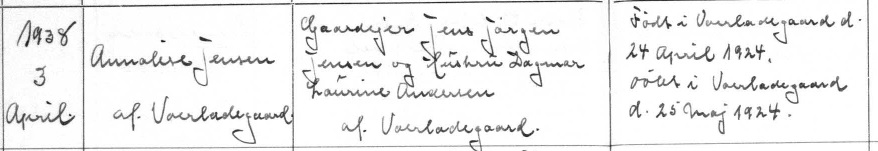 1938
3
April
Annalise Jensen
af. Voerladegaard.
Gaardejer Jens Jörgen
Jensen og Hustru Dagmar
Laurine Andersen
af. Voerladegaard.
Födt i Voerladegaard d.
24 April 1924.
Döbt i Voerladegaard
d. 25 Maj 1924.